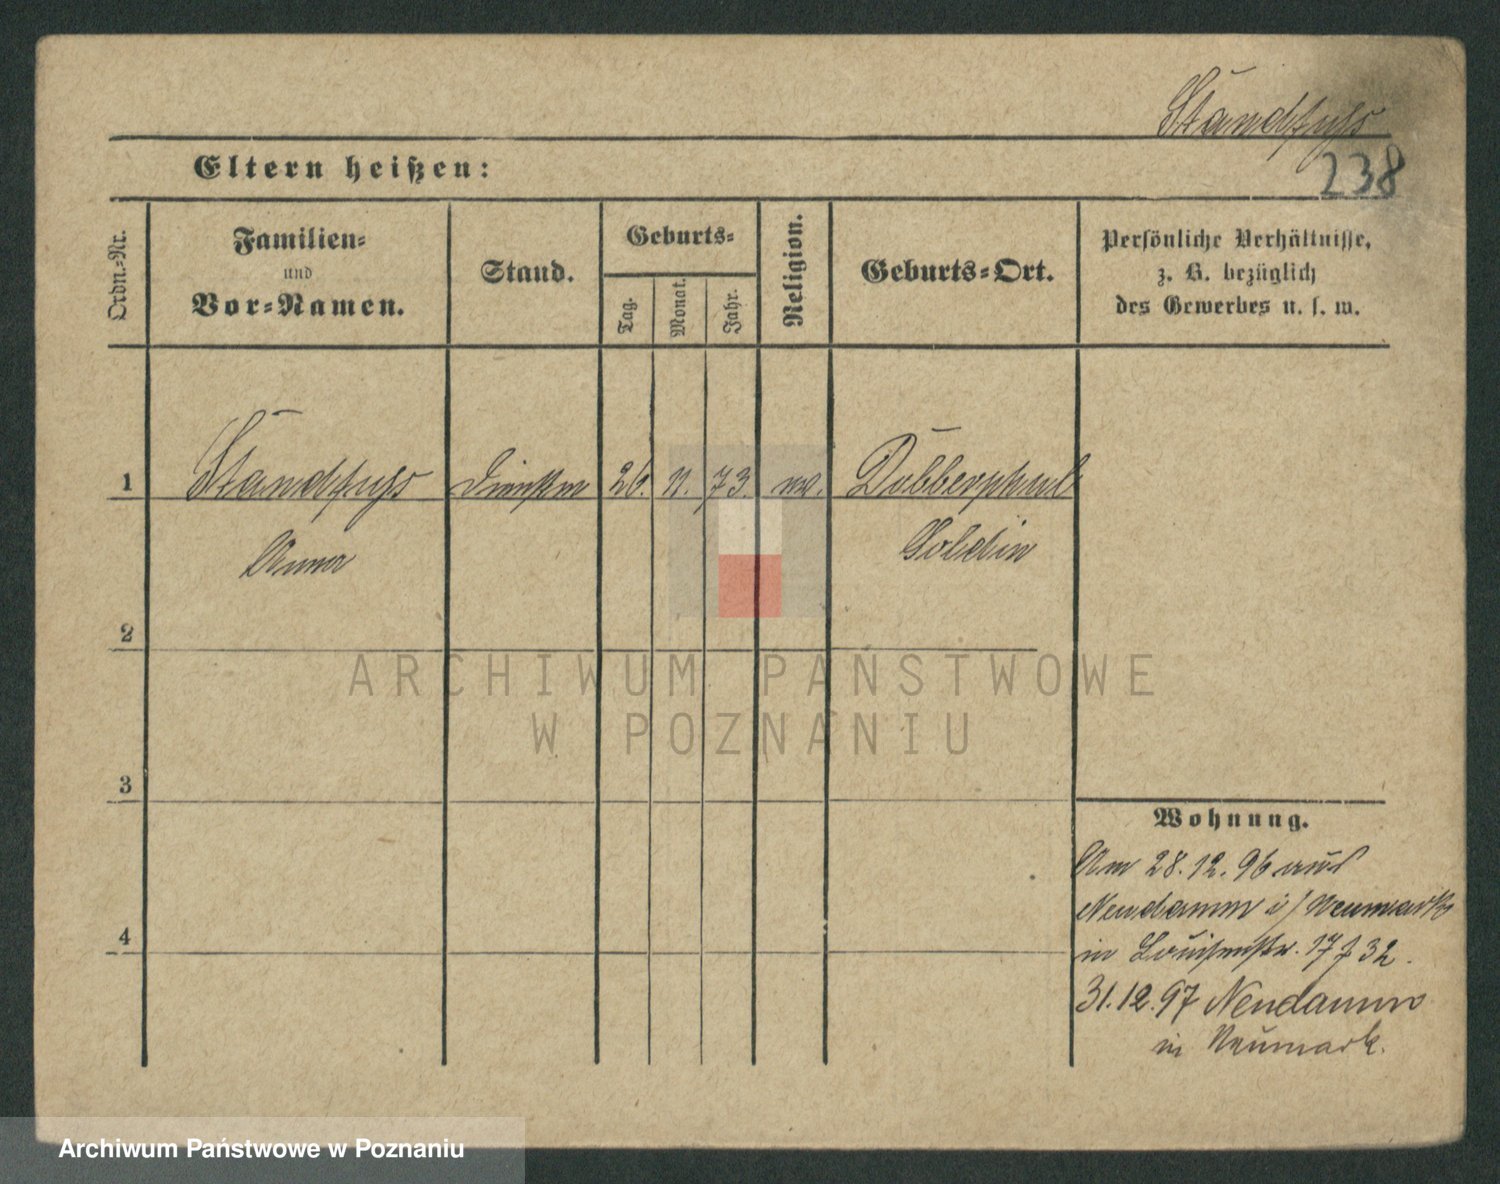 Standfuss
238
Eltern heißen:
Ordn.-Nr.
Familien-
und
Vor-Namen.
Stand.
Geburts-
Tag.
Monat.
Jahr.
Religion.
Geburts-Ort.
Persönliche Verhältnisse,
z. B. bezüglich
des Gewerbes u. s. w.
1 Standfuss 26. 11. 73. ev. Dobberphul
Anna Soldin
2
3
4
Wohnung.
Am 28.12.96 aus
Neudamm i/Neumark
in Louisenstr. 17 f 32.
31.12.97 Neudamm
in Neumark.
ARCHIWUM PAŃSTWOWE
W POZNANIU
Archiwum Państwowe w Poznaniu